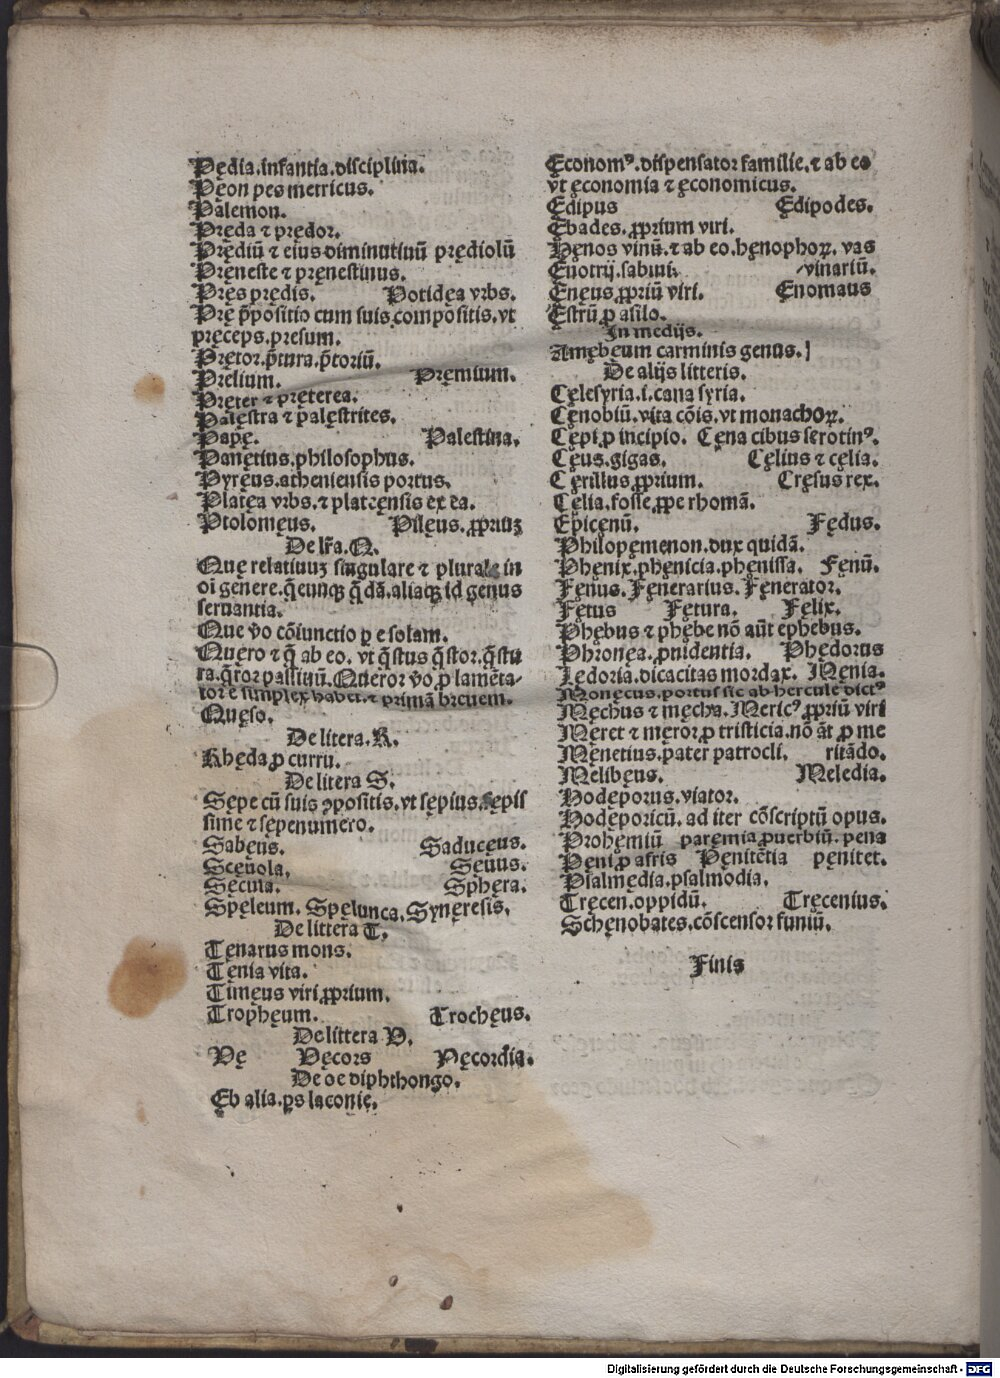 Pędia.infantia.disciplina.
Pęon pes metricus.
Palemon.
Pręda ⁊ prędor.
Prędiū ⁊ eius diminutiuū prędiolū
Pręneste ⁊ pręnestinus.
Pręs prędis. Potidęa vrbs.
Prę p̄positio cum suis compositis.vt
pręceps.presum.
Pretor.p̄tura.p̄toriū.
Prelium. Premium.
Pręter ⁊ pręterea.
Palęstra ⁊ palęstrites.
Papę. Palestina.
Panetius.philosophus.
Pyręus.atheniensis portus.
Platęa vrbs.⁊ plateensis ex ea.
Ptolomęus. Pilęus.ꝓpriuꝫ
De lr̄a.Q.
Quę relatiuuꝫ singulare ⁊ plurale in
oi genere.q̄cunqꝫ q̄dā.aliaqꝫ id genus
seruantia.
Que v̄o cōiunctio ꝑ e solam.
Quęro ⁊ q̄ ab eo. vt q̄stus q̄stor.q̄stu
ra.q̄ror passiuū.Queror v̄o ꝓ lamēta-
tor e simplex habet.⁊ primā breuem.
Quęso.
De litera.R.
Rhęda ꝓ curru.
De litera S.
Sępe cū suis ꝯpositis.vt sępius.sępis
sime ⁊ sępenumero.
Sabęus. Saducęus.
Scęuola. Sęuus.
Sęcula. Sphęra.
Spęleum. Spęlunca. Synęresis.
De littera T.
Tęnarus mons.
Tęnia vita.
Timęus viri ꝓprium.
Trophęum. Trochęus.
De littera V.
Vę Vęcors Vęcordia.
De oe diphthongo.
Ęb alia.ꝑs laconię.
Ęconomꝰ.dispensator familie.⁊ ab eo
vt ęconomia ⁊ ęconomicus.
Ędipus Ędipodes.
Ębades. ꝓprium viri.
Hęnos vinū.⁊ ab eo.hęnophoꝝ. vas
Ęnotrij.sabini. vinariū.
Ęnęus.ꝓpriū viri. Ęnomaus
Ęstrū ꝓ asilo.
In medijs.
Amębeum carminis genus.
De alijs litteris.
Cęlesyria.i.caua syria.
Cęnobiū.vita cōis.vt monachoꝝ.
Cępi.ꝓ incipio. Cęna cibus serotinꝰ.
Cęus.gigas. Cęlius ⁊ cęlia.
Cęrillus.ꝓprium. Cręsus rex.
Cęlia.fosse.ꝓpe rhomā.
Epicęnū. Fędus.
Philopęmenon.dux quidā.
Phęnix.phęnicia.phęnissa. Fęnū.
Fęnus.Fęnerarius.Fęnerator.
Fętus Fętura. Fęlix.
Phębus ⁊ phębe nō aūt ephebus.
Phronęa.ꝓuidentia. Phędorus
Lędoria.dicacitas mordax. Męnia.
Monęcus.portus sic ab hercule dictꝰ
Męchus ⁊ męcha.Mericꝰ.ꝓpriū viri
Męret ⁊ męror.ꝓ tristicia.nō āt ꝓ me
Męnetius.pater patrocli. ritādo.
Melibęus. Melędia.
Hodęporus.viator.
Hodęporicū. ad iter cōscriptū opus.
Prohęmiū paręmia.ꝓuerbiū. pęna
Pęni.ꝓ afris Pęnitētia pęnitet.
Psalmędia.psalmodia.
Tręcen.oppidū. Tręcenius.
Schęnobates.cōscensor funiū.
Finis
Digitalisierung gefördert durch die Deutsche Forschungsgemeinschaft - DFG